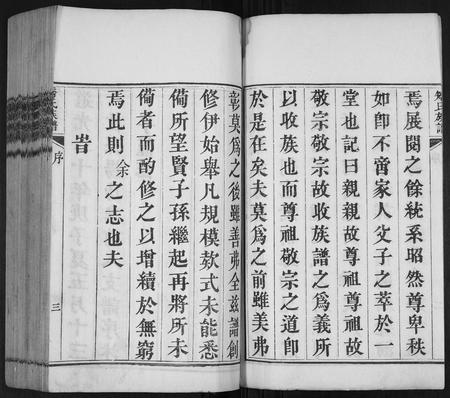 焉展閱之餘統系昭然尊卑秩
如卽不啻家人父子之萃於一
堂也記曰親親故尊祖尊祖故
敬宗敬宗故收族譜之爲義所
以收族也而尊祖敬宗之道卽
於是在矣夫莫爲之前雖美弗
彰莫爲之後雖善弗全兹譜創
修伊始舉凡規模欵式未能悉
備所望賢子孫繼起再將所未
備者而酌修之以增續於無窮
焉此則余之志也夫
旹
序
三